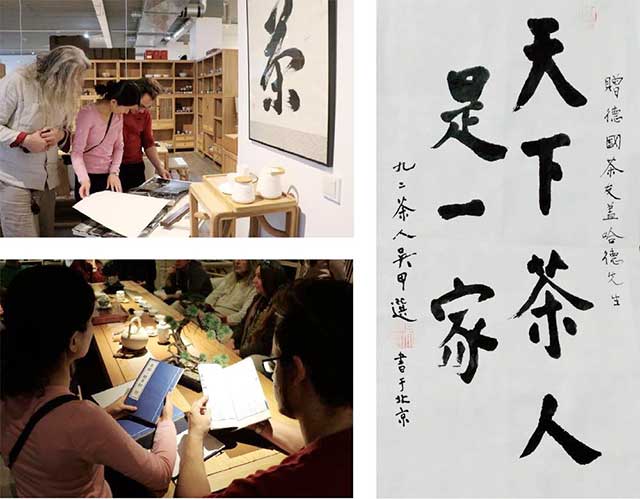 茶
贈德國茶友盖哈德先生
天下茶人
是一家
九二茶人吳甲選 書于北京